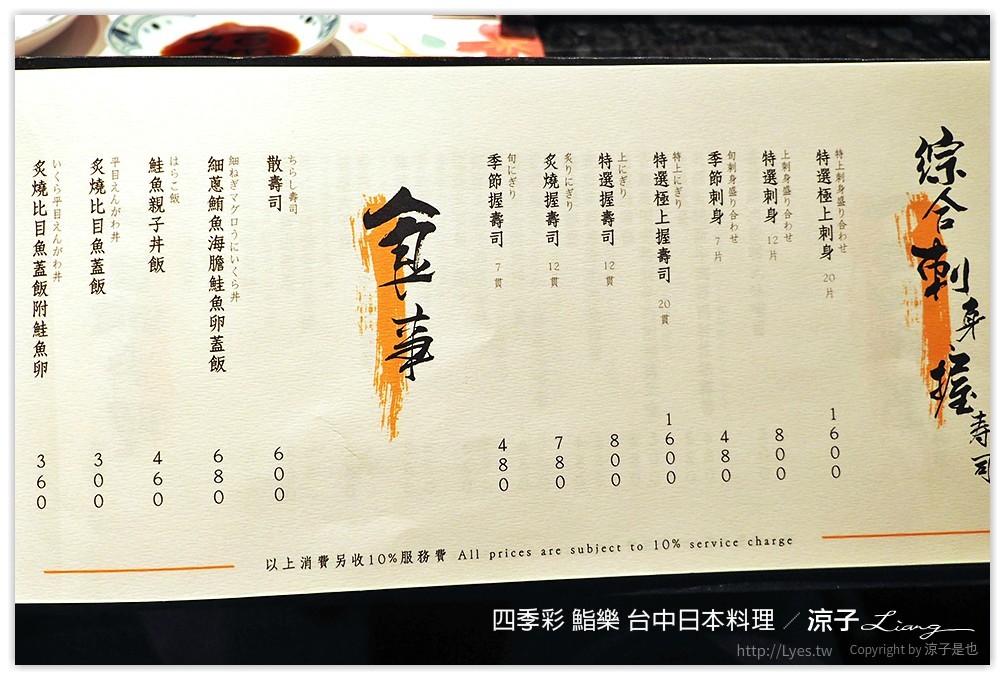 綜合刺身握寿司
特上刺身盛り合わせ
特選極上刺身 20片 1600
上刺身盛り合わせ
特選刺身 12片 800
旬刺身盛り合わせ
季節刺身 7片 480
特上にぎり
特選極上握壽司 20貫 1600
上にぎり
特選握壽司 12貫 800
炙りにぎり
炙燒握壽司 12貫 780
旬にぎり
季節握壽司 7貫 480
食事
ちらし壽司
散壽司 600
細ねぎマグロうにいくら丼
細蔥鮪魚海膽鮭魚卵蓋飯 680
はらこ飯
鮭魚親子丼飯 460
平目えんがわ丼
炙燒比目魚蓋飯 300
いくら平目えんがわ丼
炙燒比目魚蓋飯附鮭魚卵 360
以上消費另收10%服務費 All prices are subject to 10% service charge
四季彩 鮨樂 台中日本料理 ／ 涼子 Liang
http://Lyes.tw Copyright by 涼子是也